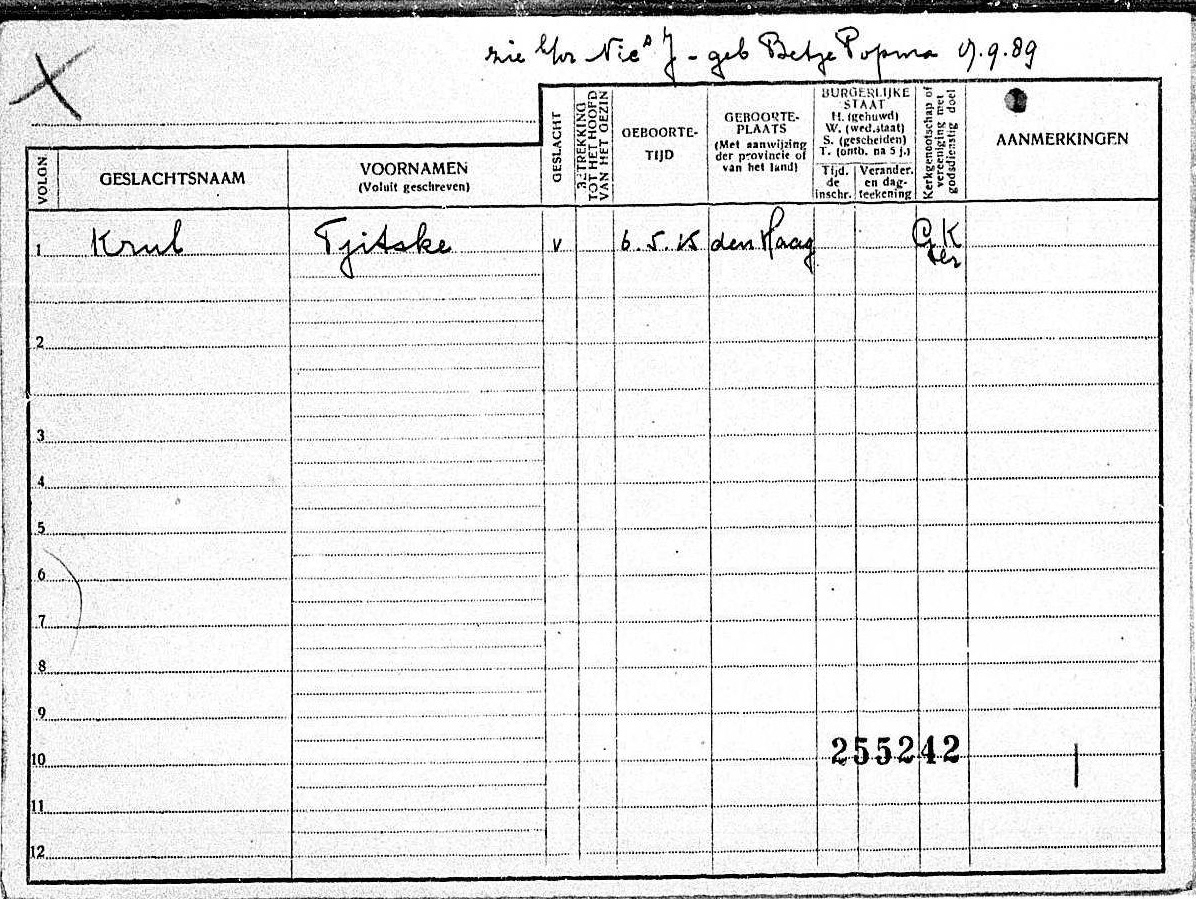 zie Nic J - geb Betze Popma 9.89
BURGERLIJKE STAAT
H. (gehuwd)
W. (wed.staat)
S. (gescheiden)
T. (ontb. na 5 j.)
GESLACHT
BETREKKING TOT HET HOOFD VAN HET GEZIN
GEBOORTE-TIJD
GEBOORTE-PLAATS
(Met aanwijzing der provincie of van het land)
Kerkgenootschap of vereeniging met godsdienstig doel
AANMERKINGEN
VOLGN
GESLACHTSNAAM
VOORNAMEN
(Voluit geschreven)
Tijd. de inschr.
Verander. en dag-teekening
1 Krul Tjitske v 6.5.15 den Haag G K
2
3
4
5
6
7
8
9
10 255242
11
12